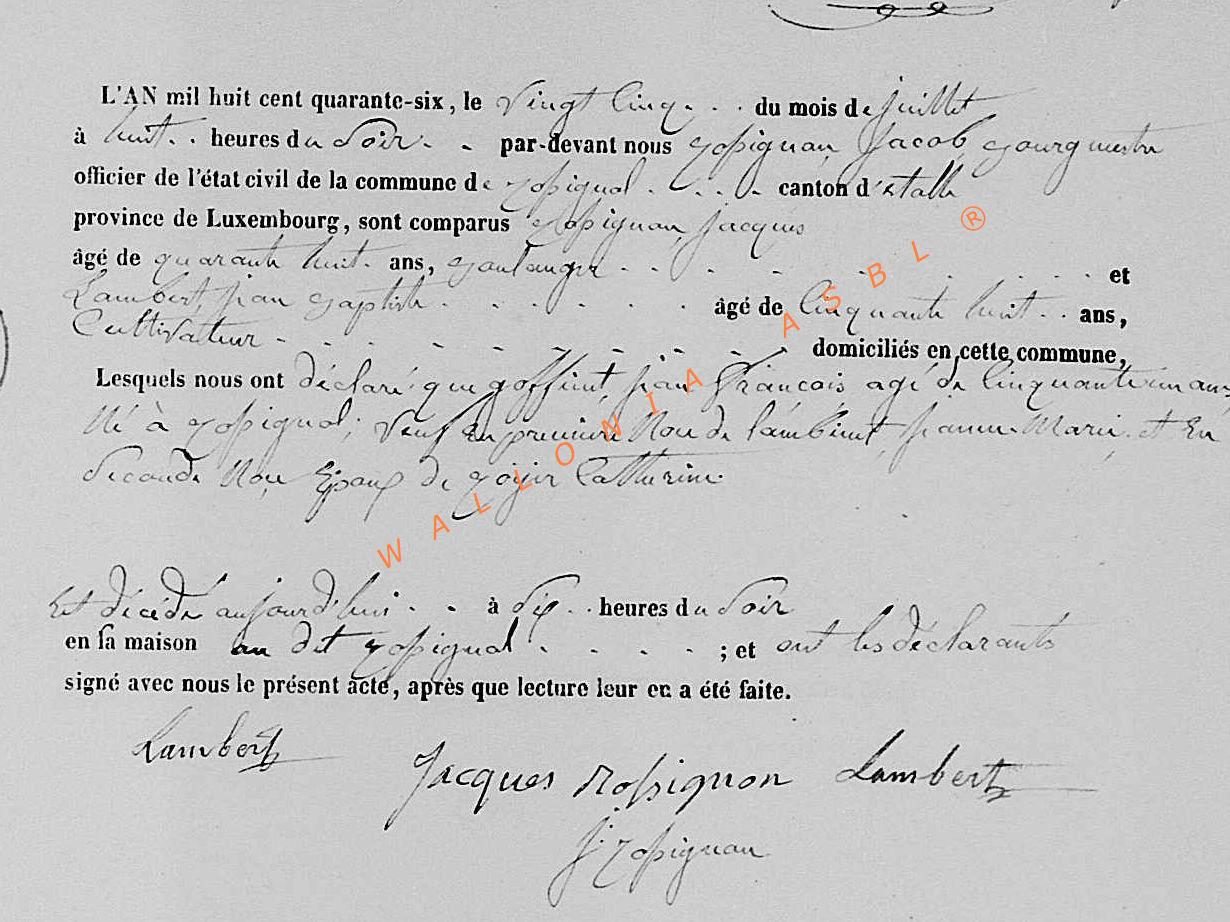 L'AN mil huit cent quarante-six, le vingt Cinq . . du mois de juillet
à huit . . heures du Soir - . par-devant nous Rossignon Jacob Bourgmestre
officier de l'état civil de la commune de Rossignol . . . . canton d'Etalle
province de Luxembourg, sont comparus Rossignon Jacques
âgé de quarante huit . ans, Boulanger . . . . . . . . et
Lambert, jean Baptiste . . . . . . âgé de Cinquante huit . . ans,
Cultivateur - . - . - . - . - domiciliés en cette commune,
Lesquels nous ont déclaré que goffinet, jean françois, agé de Cinquante un ans
Né à Rossignol. Veuf en premiere Noce de Lambinet jeanne Marie. et En
Seconde Noce Epoux de Catherine.
Est décédé aujourd'hui . . à Six . . heures du Soir
en sa maison au dit Rossignol . . . . ; et ont les déclarants
signé avec nous le présent acte, après que lecture leur en a été faite.
Lambert Jacques Rossignon Lambert
J. Rossignon
WALLONIA ASBL ®